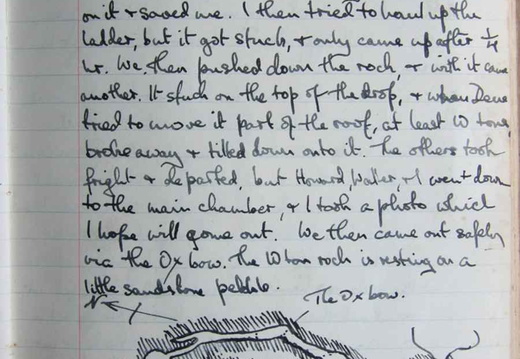 on it & saved me. I then tried to haul up the
ladder, but it got stuck, & only came up after ¼
hr. We then pushed down the rock, & with it came
another. It stuck on the top of the drop, & when Dave
tried to move it part of the roof, at least 10 tons,
broke away & tilted down onto it. The others took
fright & departed, but Howard, Walter, & I went down
to the main chamber, & I took a photo which
I hope will come out. We then came out safely
via the Ox bow. The 10 ton rock is resting on a
little sandstone pebble.
N
The Ox bow.